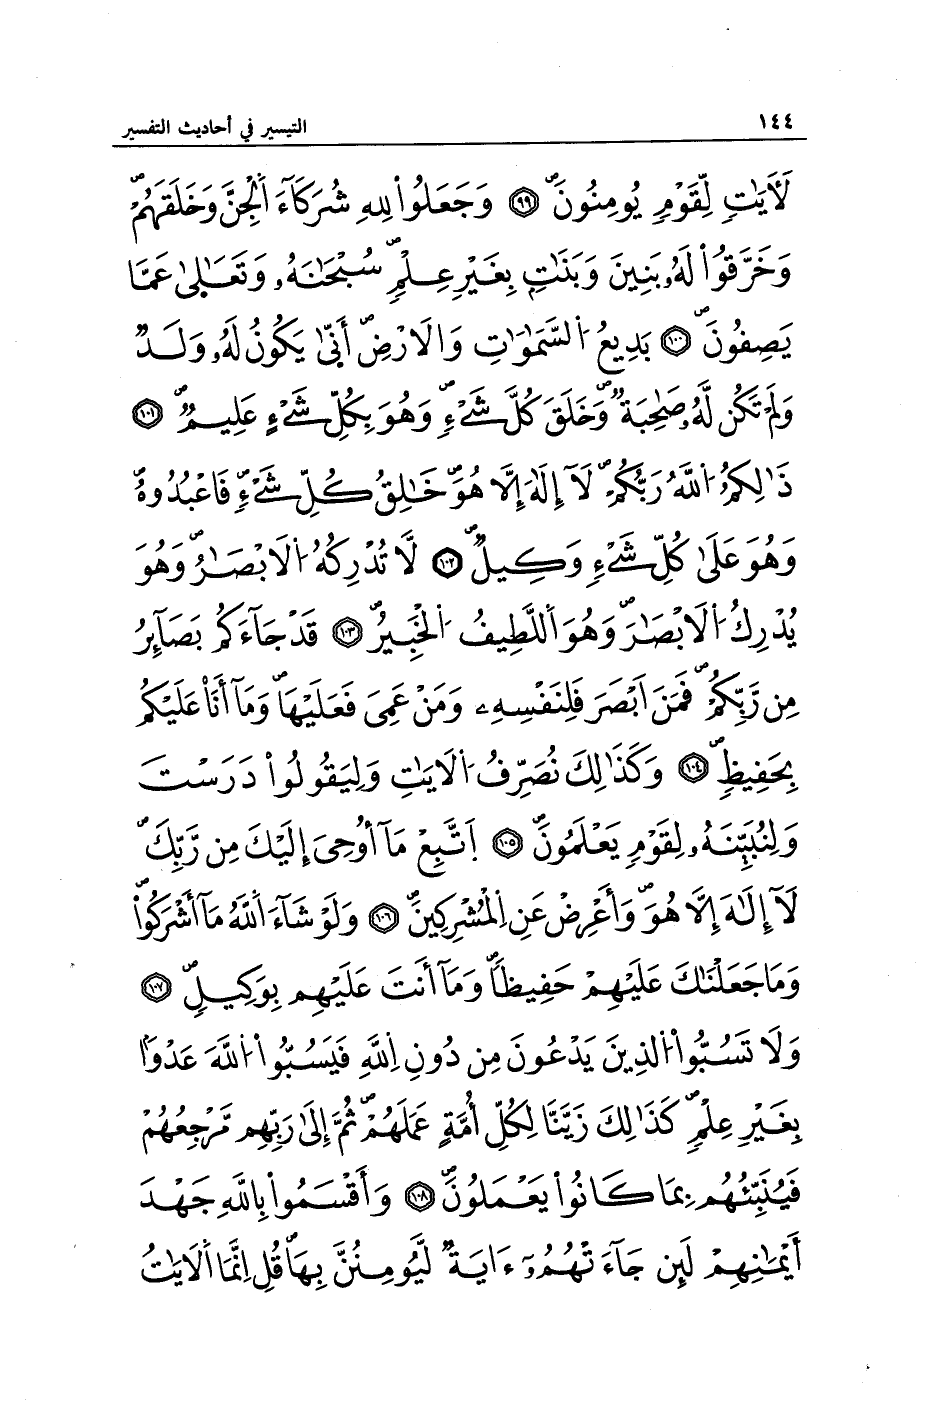 ١٤٤ التيسير في أحاديث التفسير
لَأَيَٰتٖ لِّقَوْمٖ يُومِنُونَۖ ٩٩ وَجَعَلُواْ لِلهِ شُرَكَآءَ اَ۬لْجِنَّ وَخَلَقَهُمْۖ
وَخَرَّقُواْ لَهُۥ بَنِينَ وَبَنَٰتِۢ بِغَيْرِ عِلْمٖۖ سُبْحَٰنَهُۥ وَتَعَٰلَىٰ عَمَّا
يَصِفُونَۖ ١٠٠ بَدِيعُ اُ۬لسَّمَٰوَٰتِ وَالَارْضِۖ أَنّ۪ىٰ يَكُونُ لَهُۥ وَلَدٞ
وَلَمْ تَكُن لَّهُۥ صَٰحِبَةٞۖ وَخَلَقَ كُلَّ شَےْءٖۖ وَهُوَ بِكُلِّ شَےْءٍ عَلِيمٞۖ ١٠١
ذَٰلِكُمُ اُ۬للَّهُ رَبُّكُمْۖ لَآ إِلَٰهَ إِلَّا هُوَۖ خَٰلِقُ كُلِّ شَےْءٖۖ فَاعْبُدُوهُۖ
وَهُوَ عَلَىٰ كُلِّ شَےْءٖ وَكِيلٞۖ ١٠٢ لَّا تُدْرِكُهُ اُ۬لَابْصَٰرُۖ وَهُوَ
يُدْرِكُ اُ۬لَابْصَٰرَۖ وَهُوَ اَ۬للَّطِيفُ اُ۬لْخَبِيرُۖ ١٠٣ قَدْ جَآءَكُم بَصَآئِرُ
مِن رَّبِّكُمْۖ فَمَنَ اَبْصَرَ فَلِنَفْسِهِۦ وَمَنْ عَمِىَ فَعَلَيْهَاۖ وَمَآ أَنَاْ عَلَيْكُم
بِحَفِيظٖۖ ١٠٤ وَكَذَٰلِكَ نُصَرِّفُ اُ۬لَايَٰتِ وَلِيَقُولُواْ دَرَسْتَ
وَلِنُبَيِّنَهُۥ لِقَوْمٖ يَعْلَمُونَۖ ١٠٥ اَ۪تَّبِعْ مَآ أُوحِىَ إِلَيْكَ مِن رَّبِّكَۖ
لَآ إِلَٰهَ إِلَّا هُوَۖ وَأَعْرِضْ عَنِ اِ۬لْمُشْرِكِينَۖ ١٠٦ وَلَوْ شَآءَ اَ۬للَّهُ مَآ أَشْرَكُواْۖ
وَمَا جَعَلْنَٰكَ عَلَيْهِمْ حَفِيظاٗۖ وَمَآ أَنتَ عَلَيْهِم بِوَكِيلٖۖ ١٠٧
وَلَا تَسُبُّواْ اُ۬لذِينَ يَدْعُونَ مِن دُونِ اِ۬للَّهِ فَيَسُبُّواْ اُ۬للَّهَ عَدْواَۢ
بِغَيْرِ عِلْمٖۖ كَذَٰلِكَ زَيَّنَّا لِكُلِّ أُمَّةٍ عَمَلَهُمْۖ ثُمَّ إِلَىٰ رَبِّهِم مَّرْجِعُهُمْ
فَيُنَبِّئُهُم بِمَا كَانُواْ يَعْمَلُونَۖ ١٠٨ وَأَقْسَمُواْ بِاللَّهِ جَهْدَ
أَيْمَٰنِهِمْ لَئِن جَآءَتْهُمُۥٓ ءَايَةٞ لَّيُومِنُنَّ بِهَاۖ قُلِ اِنَّمَا اَ۬لَايَٰتُ